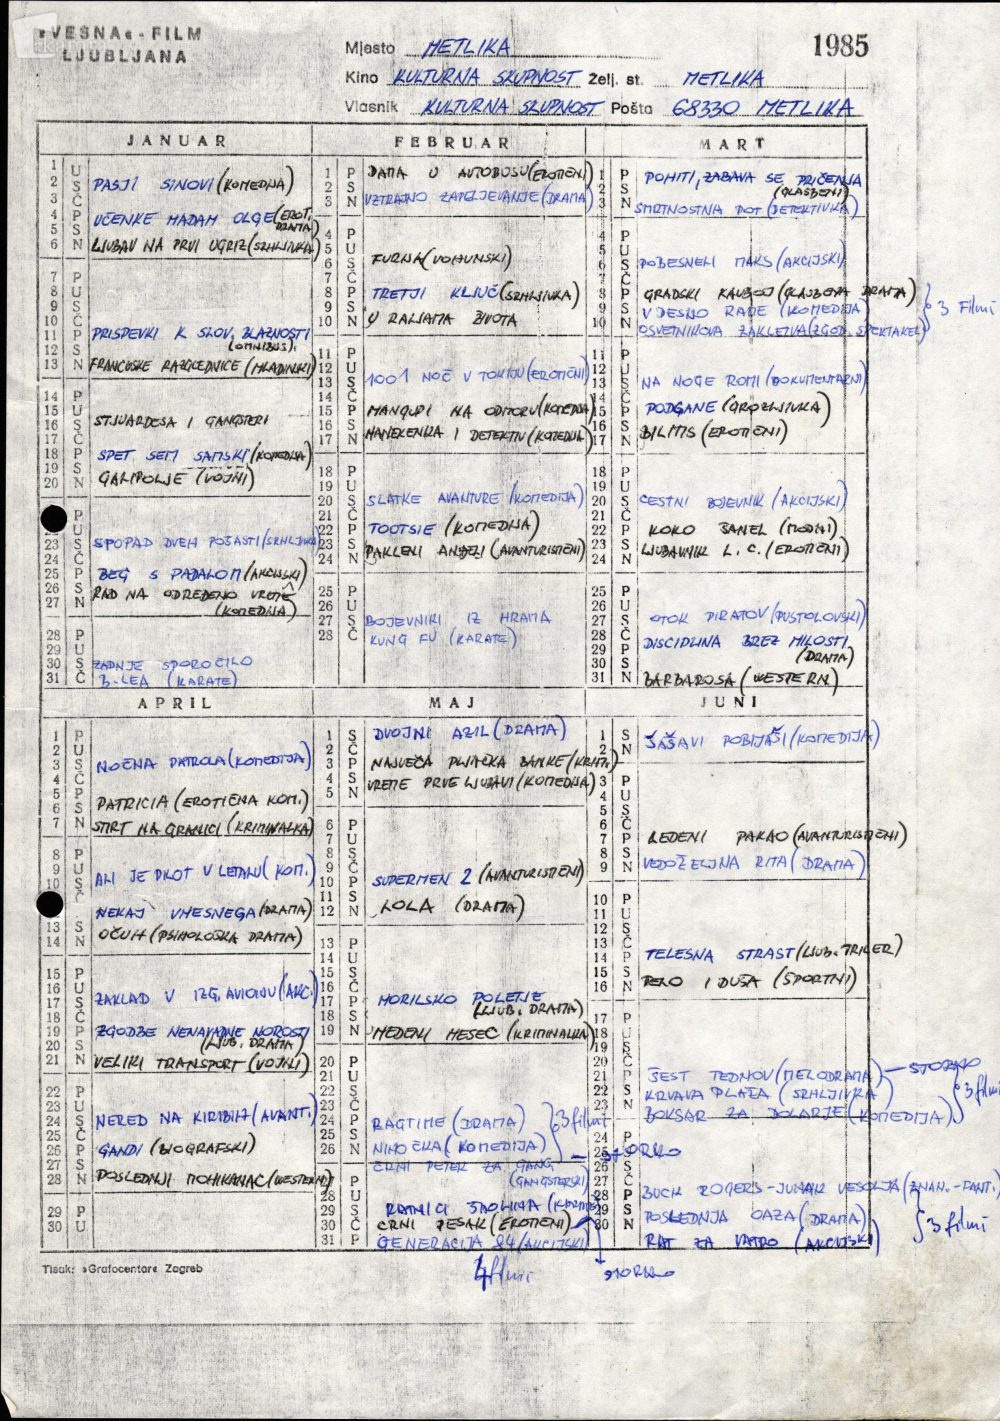 »VESNA« - FILM
LJUBLJANA
Mjesto METLIKA
1985
Kino KULTURNA SKUPNOST Želj. st. METLIKA
Vlasnik KULTURNA SKUPNOST Pošta 68330 METLIKA
JANUAR
1 U
2 S PASJI SINOVI (KOMEDIJA)
3 Č
4 P UČENKE MADAM OLGE (EROT.
5 S DRAMA)
6 N LJUBAV NA PRVI UGRIZ (SRHLJIVKA)
7 P
8 U
9 S
10 Č
11 P PRISPEVKI K SLOV. BLAZNOSTI
12 S (OMNIBUS)
13 N FRANCOSKE RAZGLEDNICE (MLADINSKI)
14 P
15 U
16 S STJUARDESA I GANGSTERI
17 Č
18 P SPET SEM SAMSKI (KOMEDIJA)
19 S
20 N GALIPOLJE (VOJNI)
P
U
23 S SPOPAD DVEH POŠASTI (SRHLJIVKA)
24 Č
25 P BEG S PADALOM (AKCIJSKI)
26 S RAD NA ODREĐENO VREME
27 N (KOMEDIJA)
28 P
29 U
30 S ZADNJE SPOROČILO
31 Č B. LEA (KARATE)
FEBRUAR
1 P DAMA U AUTOBUSU (EROTIČNI)
2 S
3 N VZTRAJNO ZAPELJEVANJE (DRAMA)
4 P
5 U
6 S FURIJA (VOHUNSKI)
7 Č
8 P TRETJI KLJUČ (SRHLJIVKA)
9 S
10 N U RALJAMA ŽIVOTA
11 P
12 U
13 S 1001 NOČ V TOKIJU (EROTIČNI)
14 Č
15 P MANGUPI NA ODMORU (KOMEDIJA)
16 S
17 N MANEKENKA I DETEKTIV (KOMEDIJA)
18 P
19 U
20 S SLATKE AVANTURE (KOMEDIJA)
21 Č
22 P TOOTSIE (KOMEDIJA)
23 S
24 N PAKLENI ANĐELI (AVANTURISTIČNI)
25 P
26 U
27 S BOJEVNIKI IZ HRAMA
28 Č KUNG FU (KARATE)
MART
1 P POHITI, ZABAVA SE PRIČENJA
2 S (GLASBENI)
3 N SMRTNOSTNA POT (DETEKTIVKA)
4 P
5 U
6 S POBESNELI MAKS (AKCIJSKI)
7 Č
8 P GRADSKI KAUBOJ (GLASBENA DRAMA)
9 S V DESNO RAME (KOMEDIJA)
10 N OSVETNIKOVA ZAKLETVA (ZGOD. SPEKTAKEL)
3 Filmi
11 P
12 U
13 S NA NOGE ROMI (DOKUMENTARNI)
14 Č
15 P PODGANE (GROZLJIVKA)
16 S
17 N BILITIS (EROTIČNI)
18 P
19 U
20 S CESTNI BOJEVNIK (AKCIJSKI)
21 Č
22 P KOKO ŠANEL (MODNI)
23 S
24 N LJUBAVNIK L. C. (EROTIČNI)
25 P
26 U
27 S OTOK PIRATOV (PUSTOLOVSKI)
28 Č
29 P DISCIPLINA BREZ MILOSTI
30 S (DRAMA)
31 N BARBAROSA (WESTERN)
APRIL
1 P
2 U
3 S NOČNA PATROLA (KOMEDIJA)
4 Č
5 P PATRICIA (EROTIČNA KOM.)
6 S
7 N SMRT NA GRANICI (KRIMINALKA)
8 P
9 U ALI JE PILOT V LETALU (KOM.)
10 S
Č
NEKAJ VMESNEGA (DRAMA)
13 S
14 N OČUH (PSIHOLOŠKA DRAMA)
15 P
16 U
17 S ZAKLAD V IZG. AVIONU (AKC.)
18 Č
19 P ZGODBE NENAVADNE NOROSTI
20 S (LJUB. DRAMA)
21 N VELIKI TRANSPORT (VOJNI)
22 P
23 U
24 S NERED NA KIRIBIJI (AVANT.)
25 Č
26 P GANDI (BIOGRAFSKI)
27 S
28 N POSLEDNJI MOHIKANAC (WESTERN)
29 P
30 U
MAJ
1 S DVOJNI AZIL (DRAMA)
2 Č
3 P NAJVEČA PLJAČKA BANKE (KRIM.)
4 S VREME PRVE LJUBAVI (KOMEDIJA)
5 N
6 P
7 U
8 S
9 Č
10 P SUPERMEN 2 (AVANTURISTIČNI)
11 S
12 N LOLA (DRAMA)
13 P
14 U
15 S
16 Č
17 P MORILSKO POLETJE
18 S (LJUB. DRAMA)
19 N MEDENI MESEC (KRIMINALKA)
20 P
21 U
22 S
23 Č
24 P RAGTIME (DRAMA)
25 S NINOČKA (KOMEDIJA)
26 N ČRNI PETER ZA GANG
3 filmi
STORNO
27 P (GANGSTERSKI)
28 U
29 S RATNICI ŠAOLINA (KARATE)
30 Č CRNI PESAK (EROTIČNI)
31 P GENERACIJA 84 (AKCIJSKI)
4 filmi
STORNO
JUNI
1 S ŠAŠAVI POBIJAŠI (KOMEDIJA)
2 N
3 P
4 U
5 S
6 Č
7 P LEDENI PAKAO (AVANTURISTIČNI)
8 S
9 N VEDOŽELJNA RITA (DRAMA)
10 P
11 U
12 S
13 Č
14 P TELESNA STRAST (LJUB. TRILER)
15 S
16 N TELO I DUŠA (ŠPORTNI)
17 P
18 U
19 S
20 Č
21 P ŠEST TEDNOV (MELODRAMA) – STORNO
22 S KRVAVA PLAŽA (SRHLJIVKA)
23 N BOKSAR ZA DOLARJE (KOMEDIJA)
3 filmi
24 P
25 U
26 S
27 Č
28 P BUCK ROGERS - JUNAK VESOLJA (ZNAN.-FANT.)
29 S POSLEDNJA OAZA (DRAMA)
30 N RAT ZA VATRO (AKCIJSKI)
3 filmi
Tisak: »Grafocentar« Zagreb